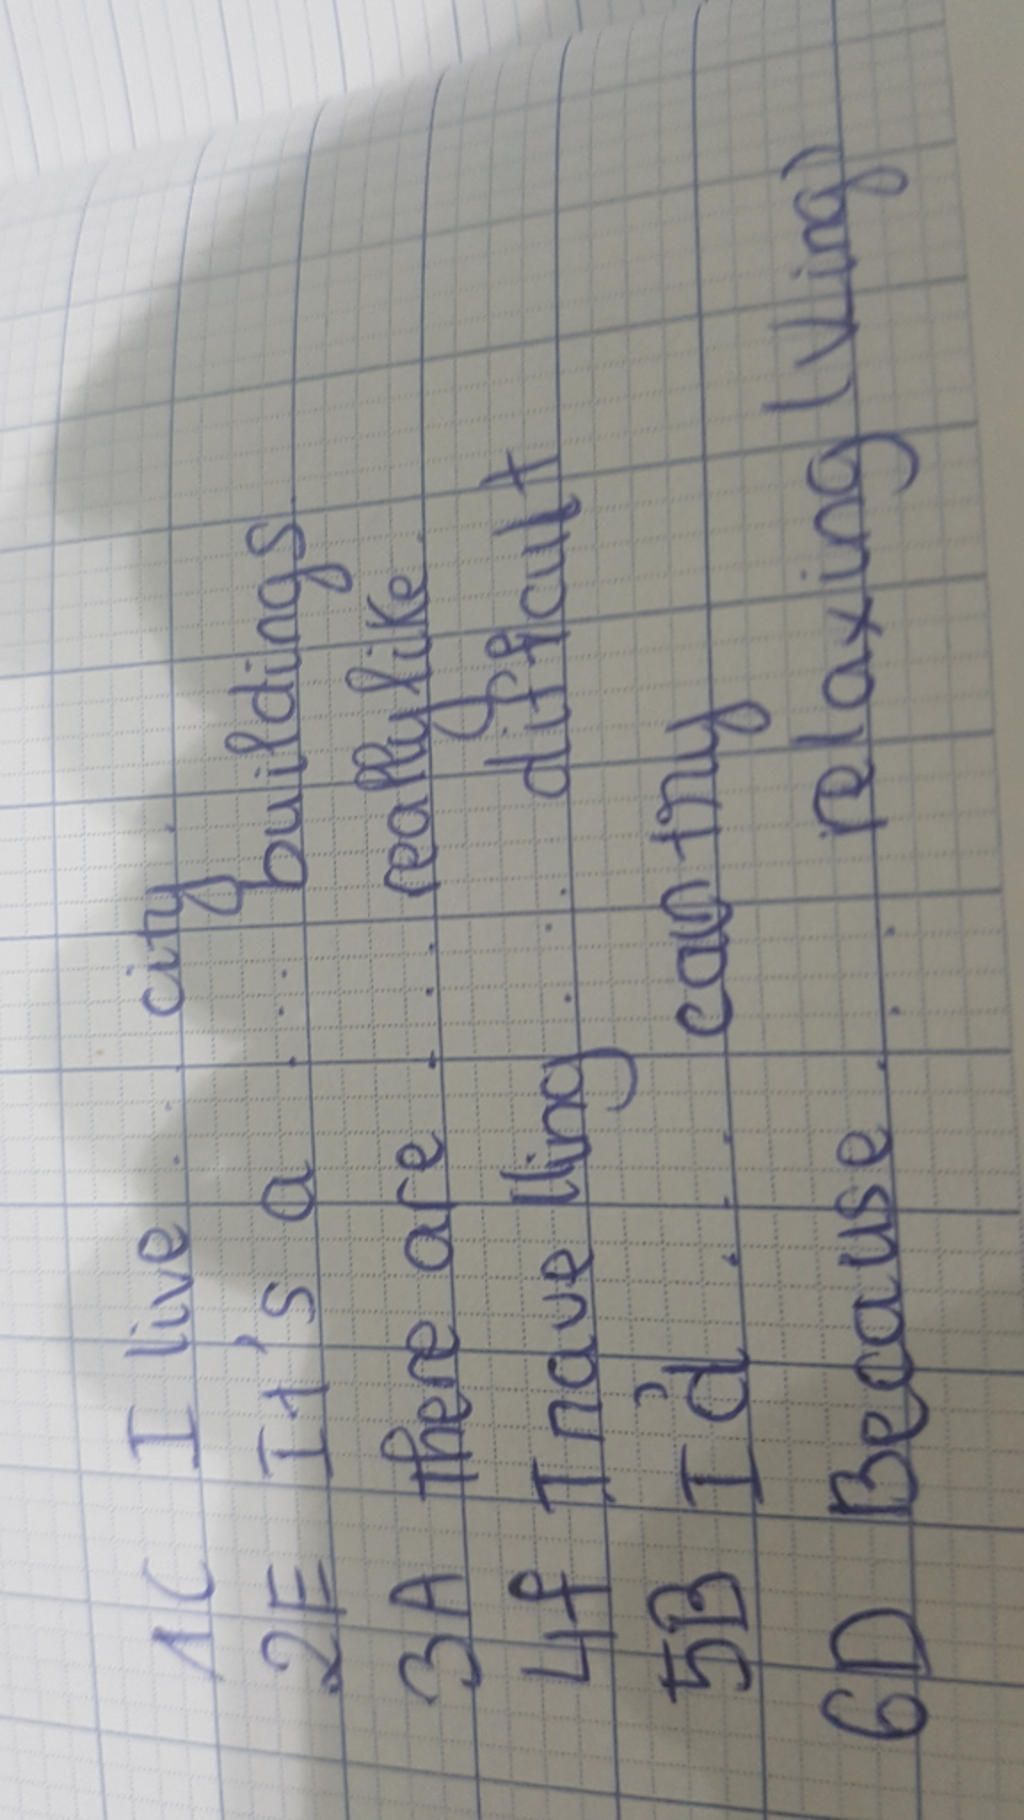 1C I live ... city.
2E It's a ... buildings
3A There are ... really like
4f Travelling ... difficult
5B I'd ... country
6D Because ... relaxing (Ving)